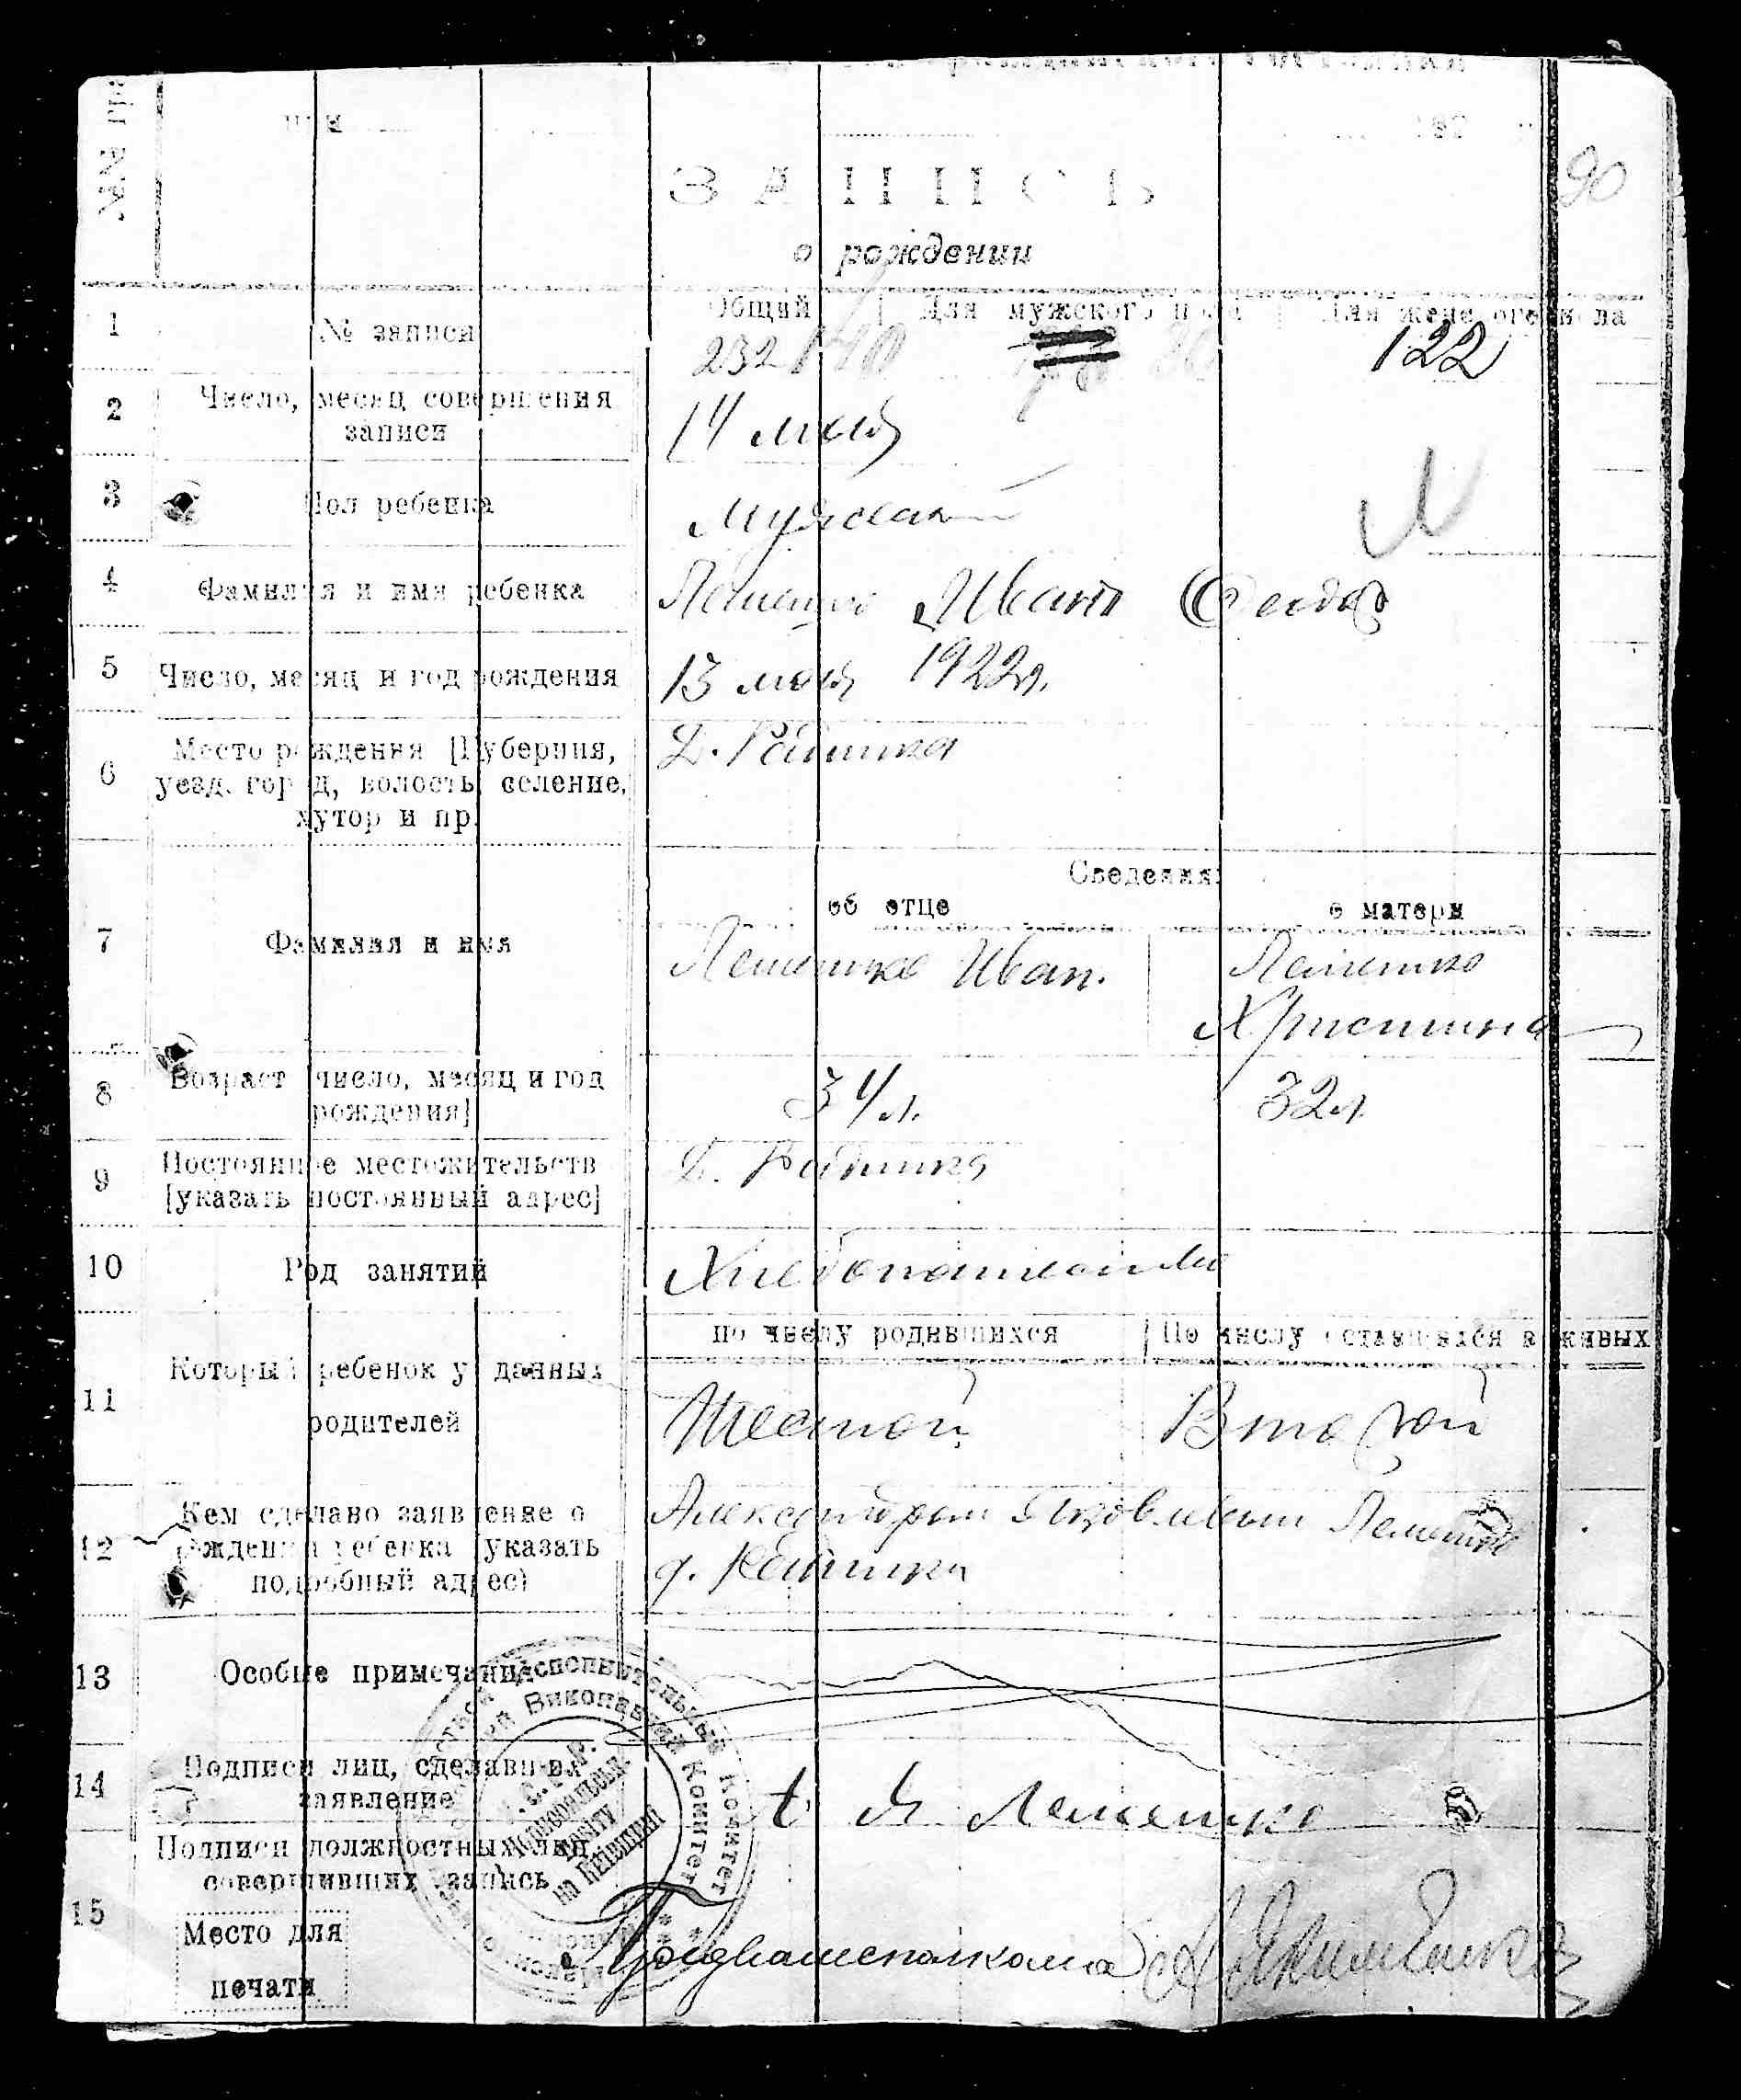 ЗАПИСЬ
о рождении
90
1 № записи
Общий Для мужского пола Для женского пола
232 122
2 Число, месяц совершения
записи
14 мая
3 Пол ребенка
Мужской
4 Фамилия и имя ребенка
Лешенко Иван
5 Число, месяц и год рождения
13 мая 1922 г.
6 Место рождения [Губерния,
уезд, город, волость, селение,
хутор и пр.
Сведения:
об отце о матери
7 Фамилия и имя
Лешенко Иван. Лешенко
Христина
8 Возраст [число, месяц и год
рождения]
34 л. 32 л
9 Постоянное местожительств
[указать постоянный адрес]
10 Род занятий
Хлебопашество
по числу родившихся По числу оставшихся в живых
11 Который ребенок у данных
родителей
Шестой Второй
12 Кем сделано заявление о
рождении ребенка (указать
подробный адрес)
Александром Яковлевым Лешенко
13 Особые примечания
14 Подписи лиц, сделавших
заявление
А Я Лешенко
15 Подписи должностных лиц
совершивших запись
Место для
печати
Исполнительный Комитет
Виконавчий Комитет
на Київщині